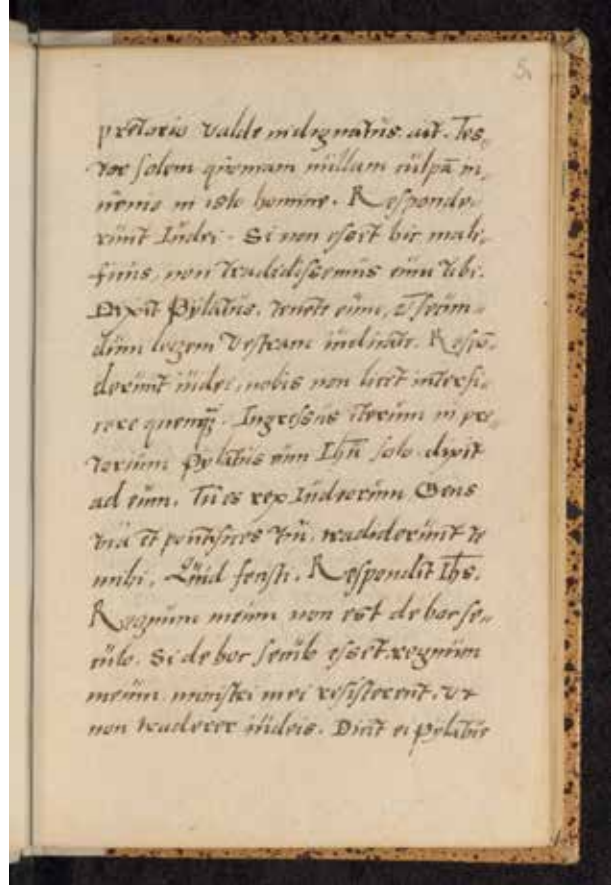 5.
pretorio valde indignatus. ait. Tes,,
tor solem quoniam nüllam cülpā in,,
uenio in isto homine. Responde,,
rünt Iüdei. Si non esset hic male,,
ficüs, non tradidissemüs eüm tibi.
Dixit Pylatüs. tenete eüm, et secün,,
düm legem vestram iüdicate. Respō,,
derünt iüdei, nobis non licet interfi,,
cere quenqȝ. Ingressüs iterüm in pre,,
toriüm pylatüs cüm Ihü solo. dixit
ad eüm. Tü es rex Iüdeorüm. Gens
tüa et pontifices tüi. tradiderünt te
mihi. Qüid fecisti. Respondit Ihs.
Regnüm meüm non est de hoc se,,
cülo. Si de hoc secülo esset regnüm
meüm. ministri mei resisterent. vt
non traderer iüdeis. Dicit ei pylatüs